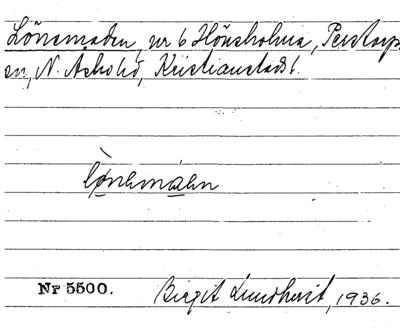 Lönemaden, nr 6 Hönsholma, Perstorps
sn, N. Åsbo hd, Kristianstads l.
lònemaden
Nr 5500.
Birgit Lundqvist, 1936.